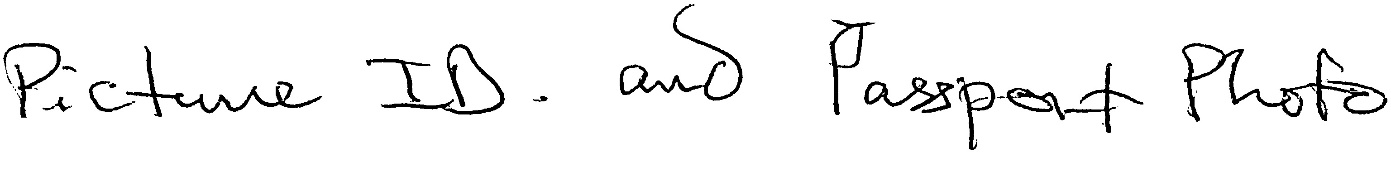 Picture ID. and Passport Photo